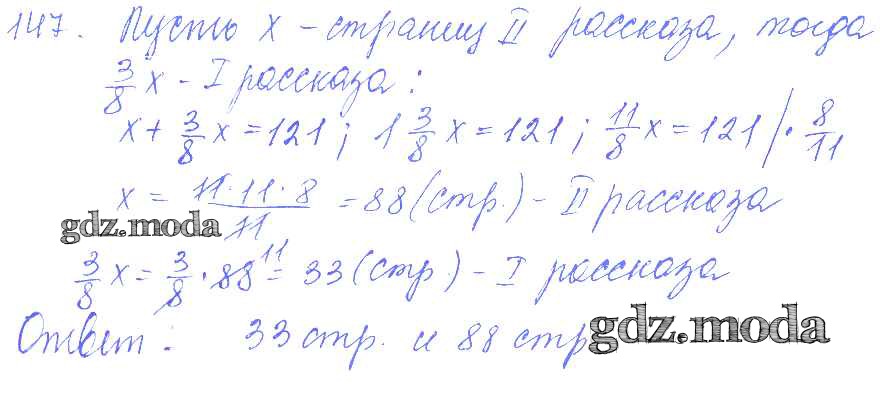 147. Пусть x – страниц II рассказа, тогда
3/8 x – I рассказа:
x + 3/8 x = 121; 1 3/8 x = 121; 11/8 x = 121 | · 8/11
x = 11·11·8/11 = 88 (стр.) – II рассказа
gdz.moda
3/8 x = 3/8 · 88 11 = 33 (стр) – I рассказа
Ответ: 33 стр. и 88 стр
gdz.moda